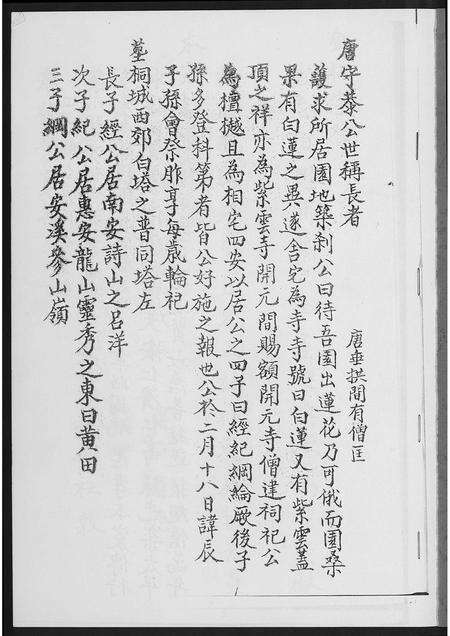 唐守恭公世稱長者 唐垂拱間有僧匡
護求所居園地築刹公曰待吾園出蓮花乃可俄而園桑
果有白蓮之異遂舍宅為寺寺號曰白蓮又有紫雲蓋
頂之祥亦為紫雲寺開元間賜額開元寺僧建祠祀公
為檀樾且為相宅四安以居公之四子曰經紀綱綸厥後子
孫多登科第者皆公好施之報也公於二月十八日諱辰
子孫會祭胙享每歲輪祀
墓桐城西郊白塔之普同塔左
長子經公居南安詩山之呂洋
次子紀公居惠安龍山靈秀之東曰黄田
三子綱公居安溪參山嶺